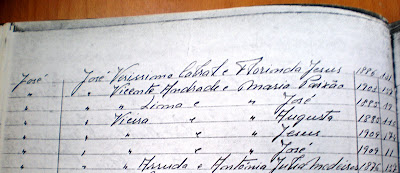 José José Verissimo Cabral e Florinda Jesus 1886
" " Vicente Andrade e Maria Paixão 1902
" " " Lima e " José 1882
" " Vieira e " Augusta 1882
" " " e " Jesus 1909
" " " e " José 1909
" " Arruda e Antónia Julia Medeiros 1876